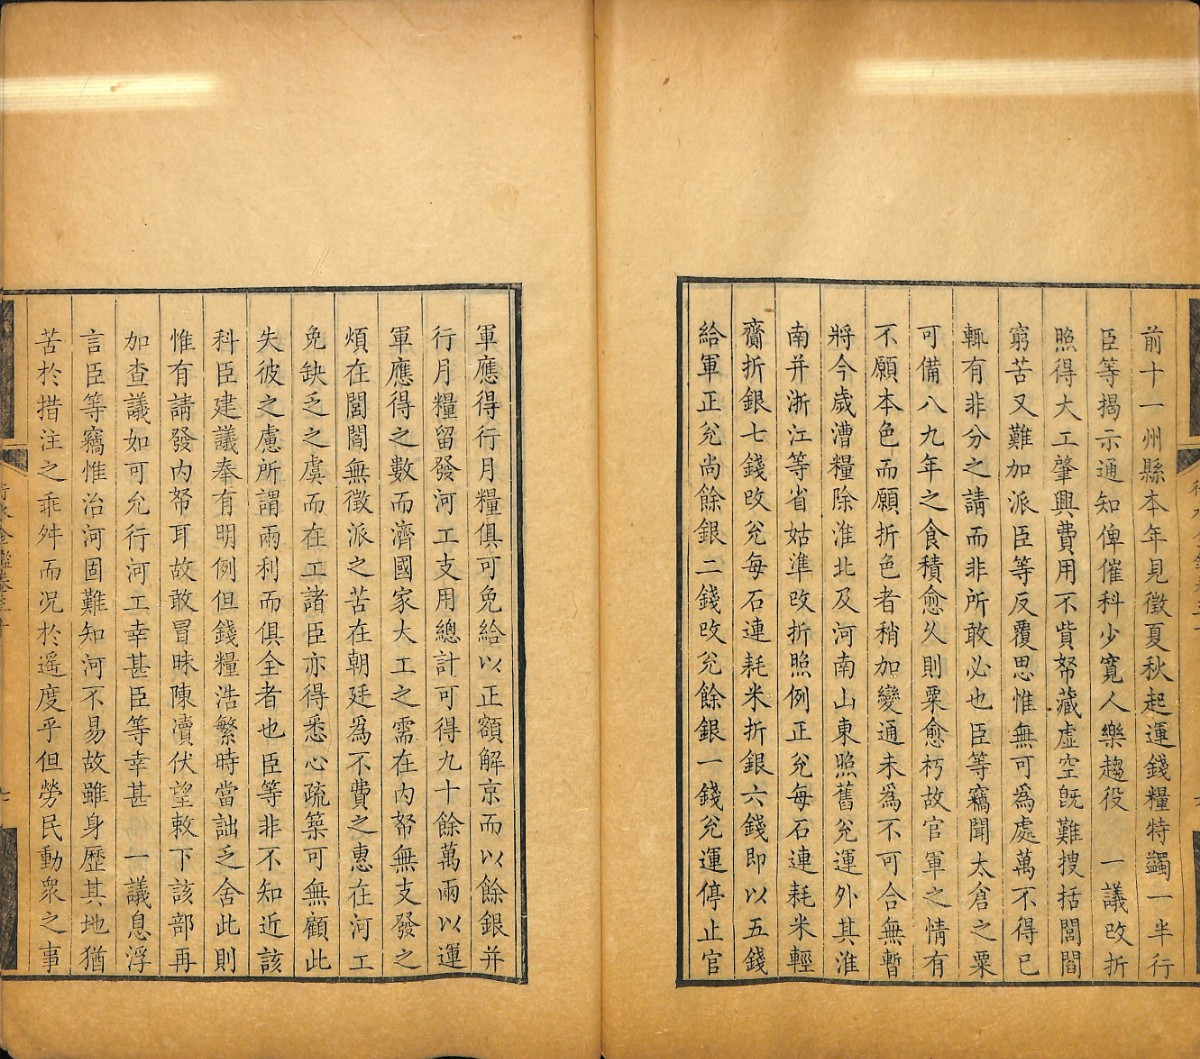 前十一州縣本年見徵夏秋起運錢糧特蠲一半行
臣等揭示通知俾催科少寬人樂趨役　一議改折
照得大工肇興費用不貲帑藏虛空旣難搜括閭閻
窮苦又難加派臣等反覆思惟無可爲處萬不得已
輒有非分之請而非所敢必也臣等竊聞太倉之粟
可備八九年之食積愈久則粟愈朽故官軍之情有
不願本色而願折色者稍加變通未爲不可合無暫
將今歲漕糧除淮北及河南山東照舊兌運外其淮
南并浙江等省姑準改折照例正兌每石連耗米輕
齎折銀七錢改兌每石連耗米折銀六錢即以五錢
給軍正兌尚餘銀二錢改兌餘銀一錢兌運停止官
軍應得行月糧俱可免給以正額解京而以餘銀并
行月糧留發河工支用總計可得九十餘萬兩以運
軍應得之數而濟國家大工之需在內帑無支發之
煩在閭閻無徵派之苦在朝廷爲不費之惠在河工
免缺乏之虞而在工諸臣亦得悉心疏築可無顧此
失彼之慮所謂兩利而俱全者也臣等非不知近該
科臣建議奉有明例但錢糧浩繁時當詘乏舍此則
惟有請發內帑耳故敢冒昧陳瀆伏望敕下該部再
加查議如可允行河工幸甚臣等幸甚　一議息浮
言臣等竊惟治河固難知河不易故雖身歷其地猶
苦於措注之乖舛而況於遙度乎但勞民動衆之事